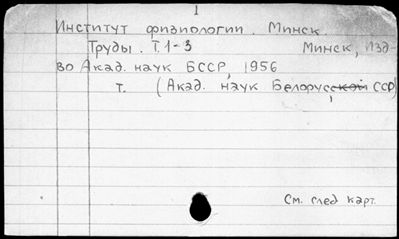 1
Институт физиологии. Минск.
Труды. Т. 1-3 Минск, Изд-
во Акад. наук БССР, 1956
т. (Акад. наук Белорусской ССР)
См. след карт.